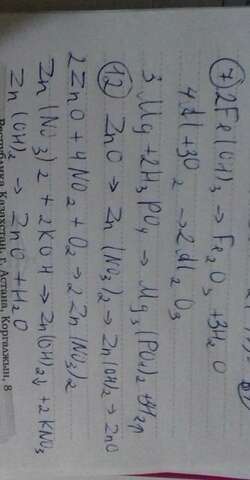 ⑦ 2Fe(OH)3 → Fe2O3 + 3H2O
4Al + 3O2 → 2Al2O3
3Mg + 2H3PO4 → Mg3(PO4)2 + H2↑
⑫ ZnO → Zn(NO3)2 → Zn(OH)2 → ZnO
2ZnO + 4NO2 + O2 → 2Zn(NO3)2
Zn(NO3)2 + 2KOH → Zn(OH)2↓ + 2KNO3
Zn(OH)2 → ZnO + H2O
Республика Казахстан, г. Астана, Коргалжын, 8